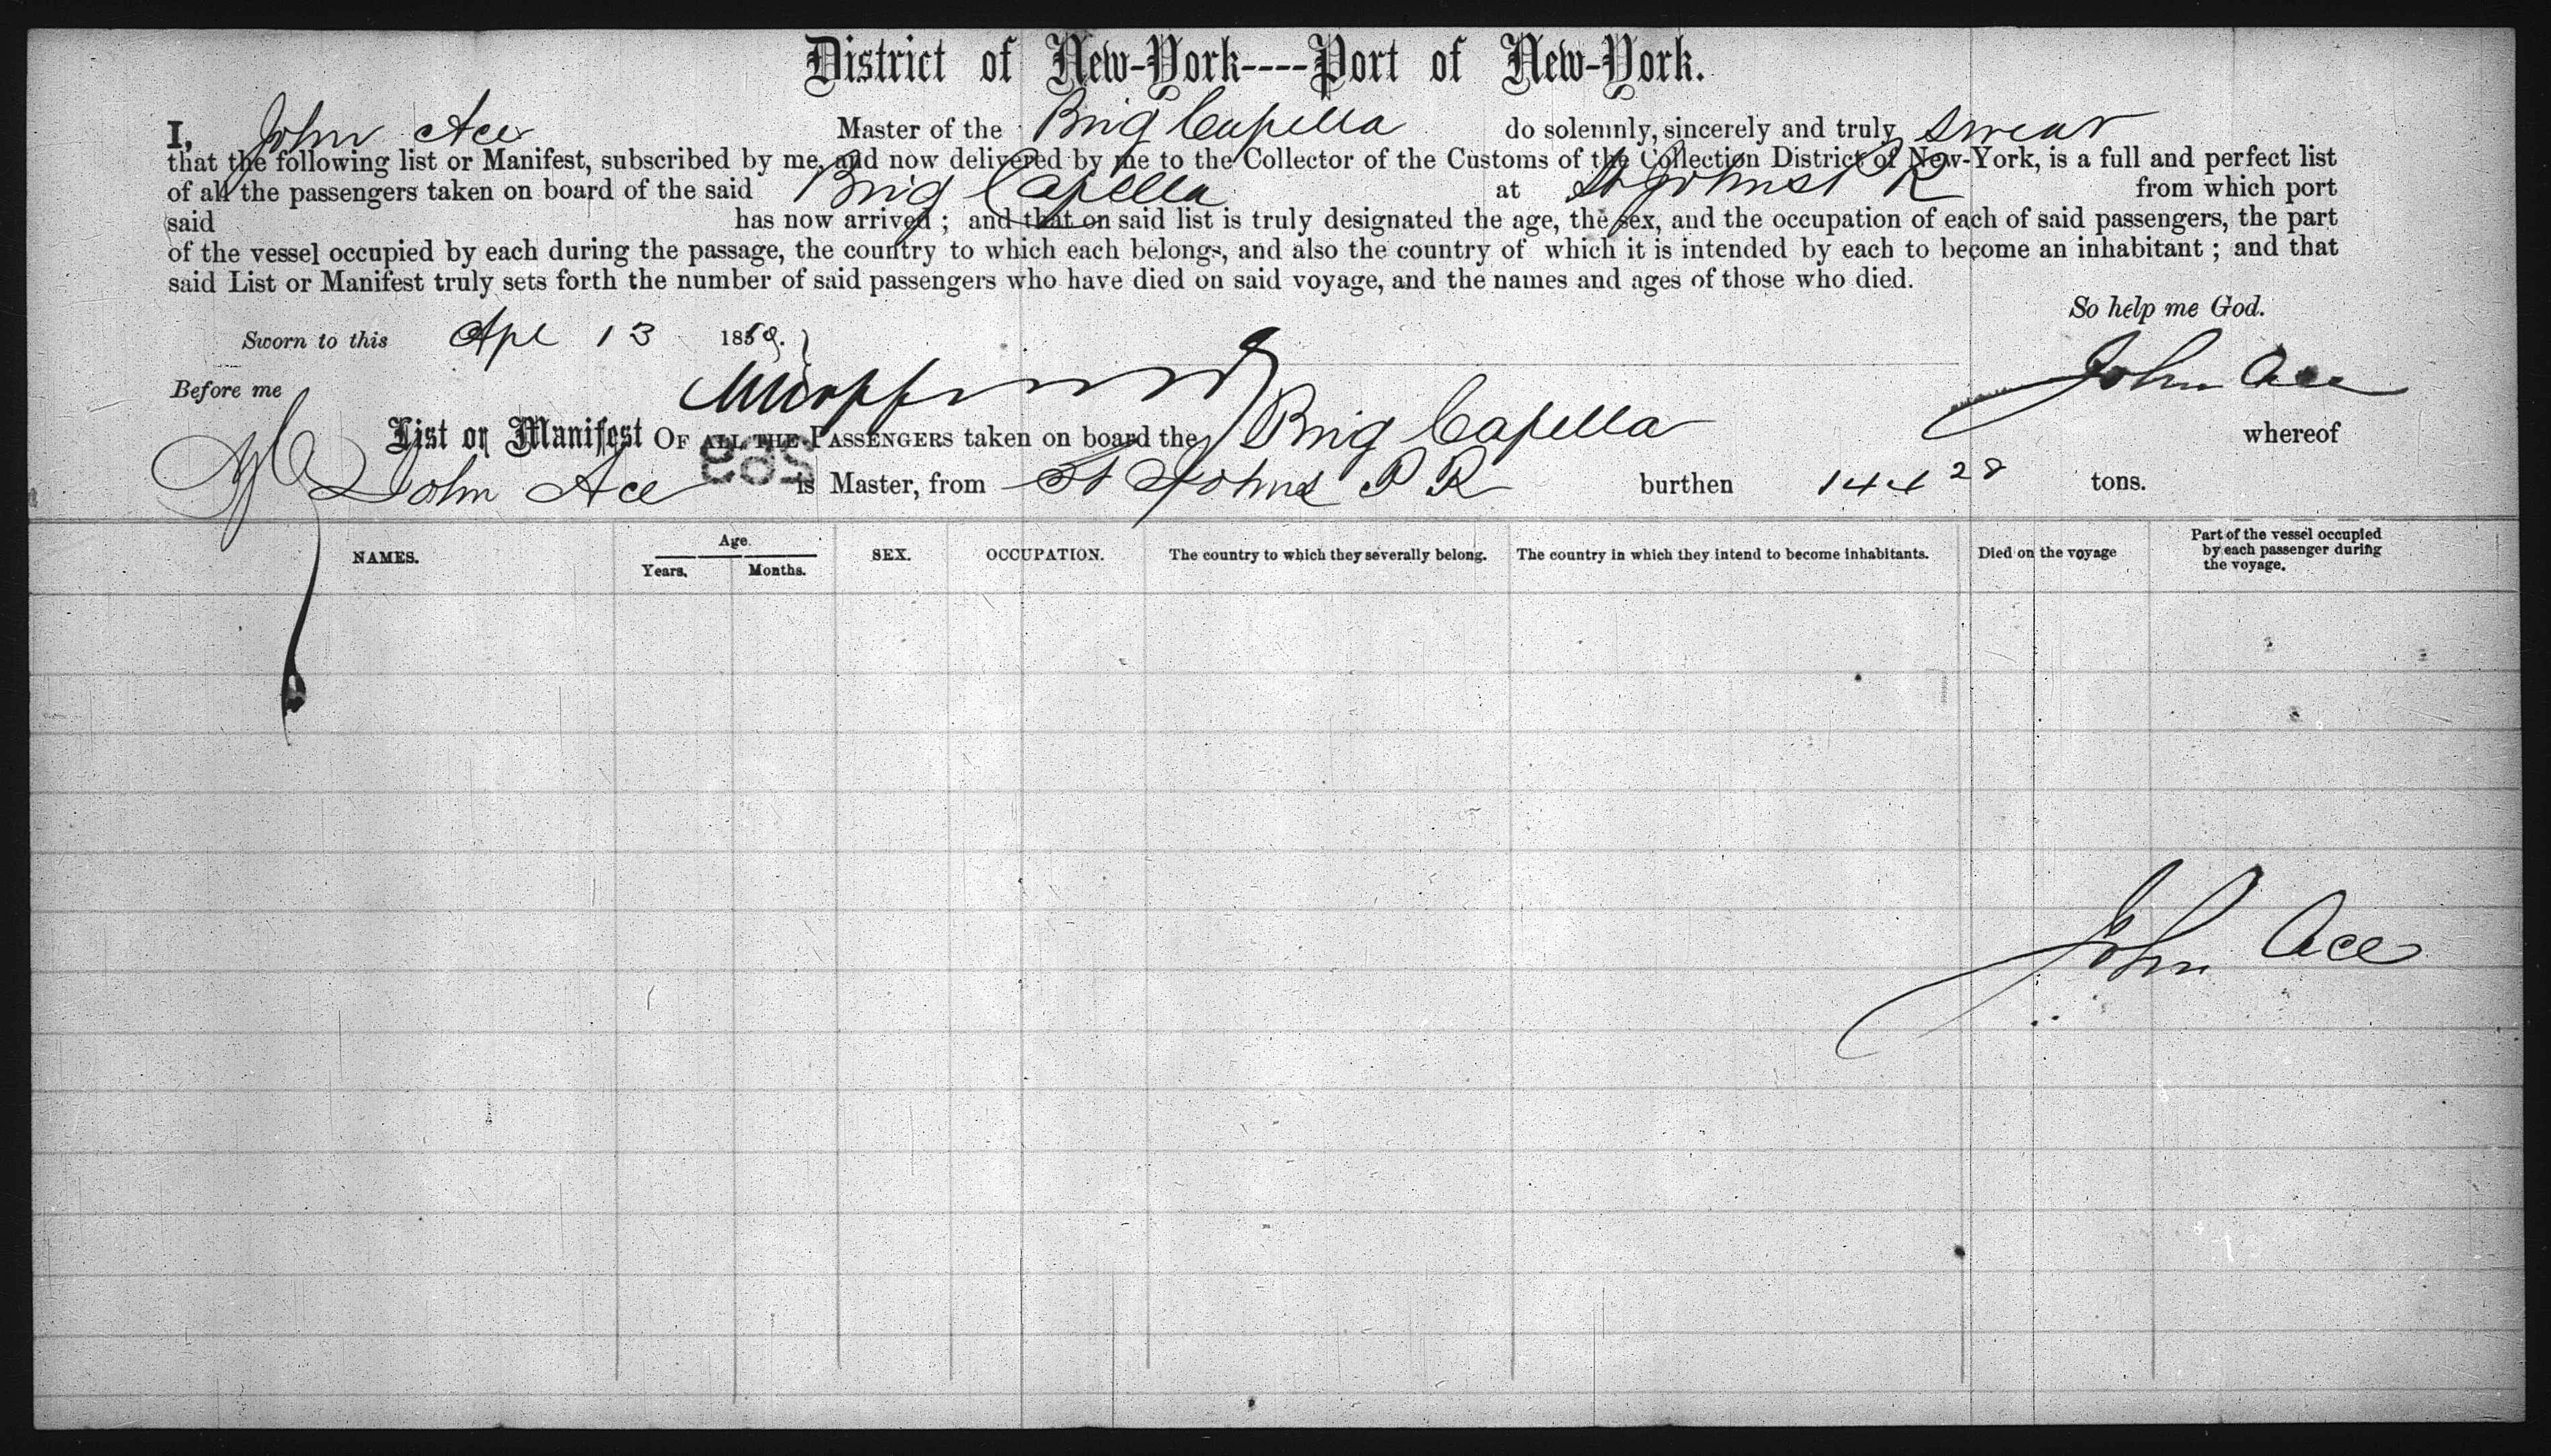 District of New-York----Port of New-York.
I, John Ace Master of the Brig Capella do solemnly, sincerely and truly swear
that the following list or Manifest, subscribed by me, and now delivered by me to the Collector of the Customs of the Collection District of New-York, is a full and perfect list
of all the passengers taken on board of the said Brig Capella at St Johns P R from which port
said has now arrived ; and that on said list is truly designated the age, the sex, and the occupation of each of said passengers, the part
of the vessel occupied by each during the passage, the country to which each belongs, and also the country of which it is intended by each to become an inhabitant ; and that
said List or Manifest truly sets forth the number of said passengers who have died on said voyage, and the names and ages of those who died.
So help me God.
Sworn to this Apl 13 1869.
John Ace
Before me
List or Manifest OF ALL THE PASSENGERS taken on board the Brig Capella whereof
John Ace is Master, from St Johns P R burthen 144 28 tons.
NAMES. Age. Years. Months. SEX. OCCUPATION. The country to which they severally belong. The country in which they intend to become inhabitants. Died on the voyage Part of the vessel occupied by each passenger during the voyage.
John Ace